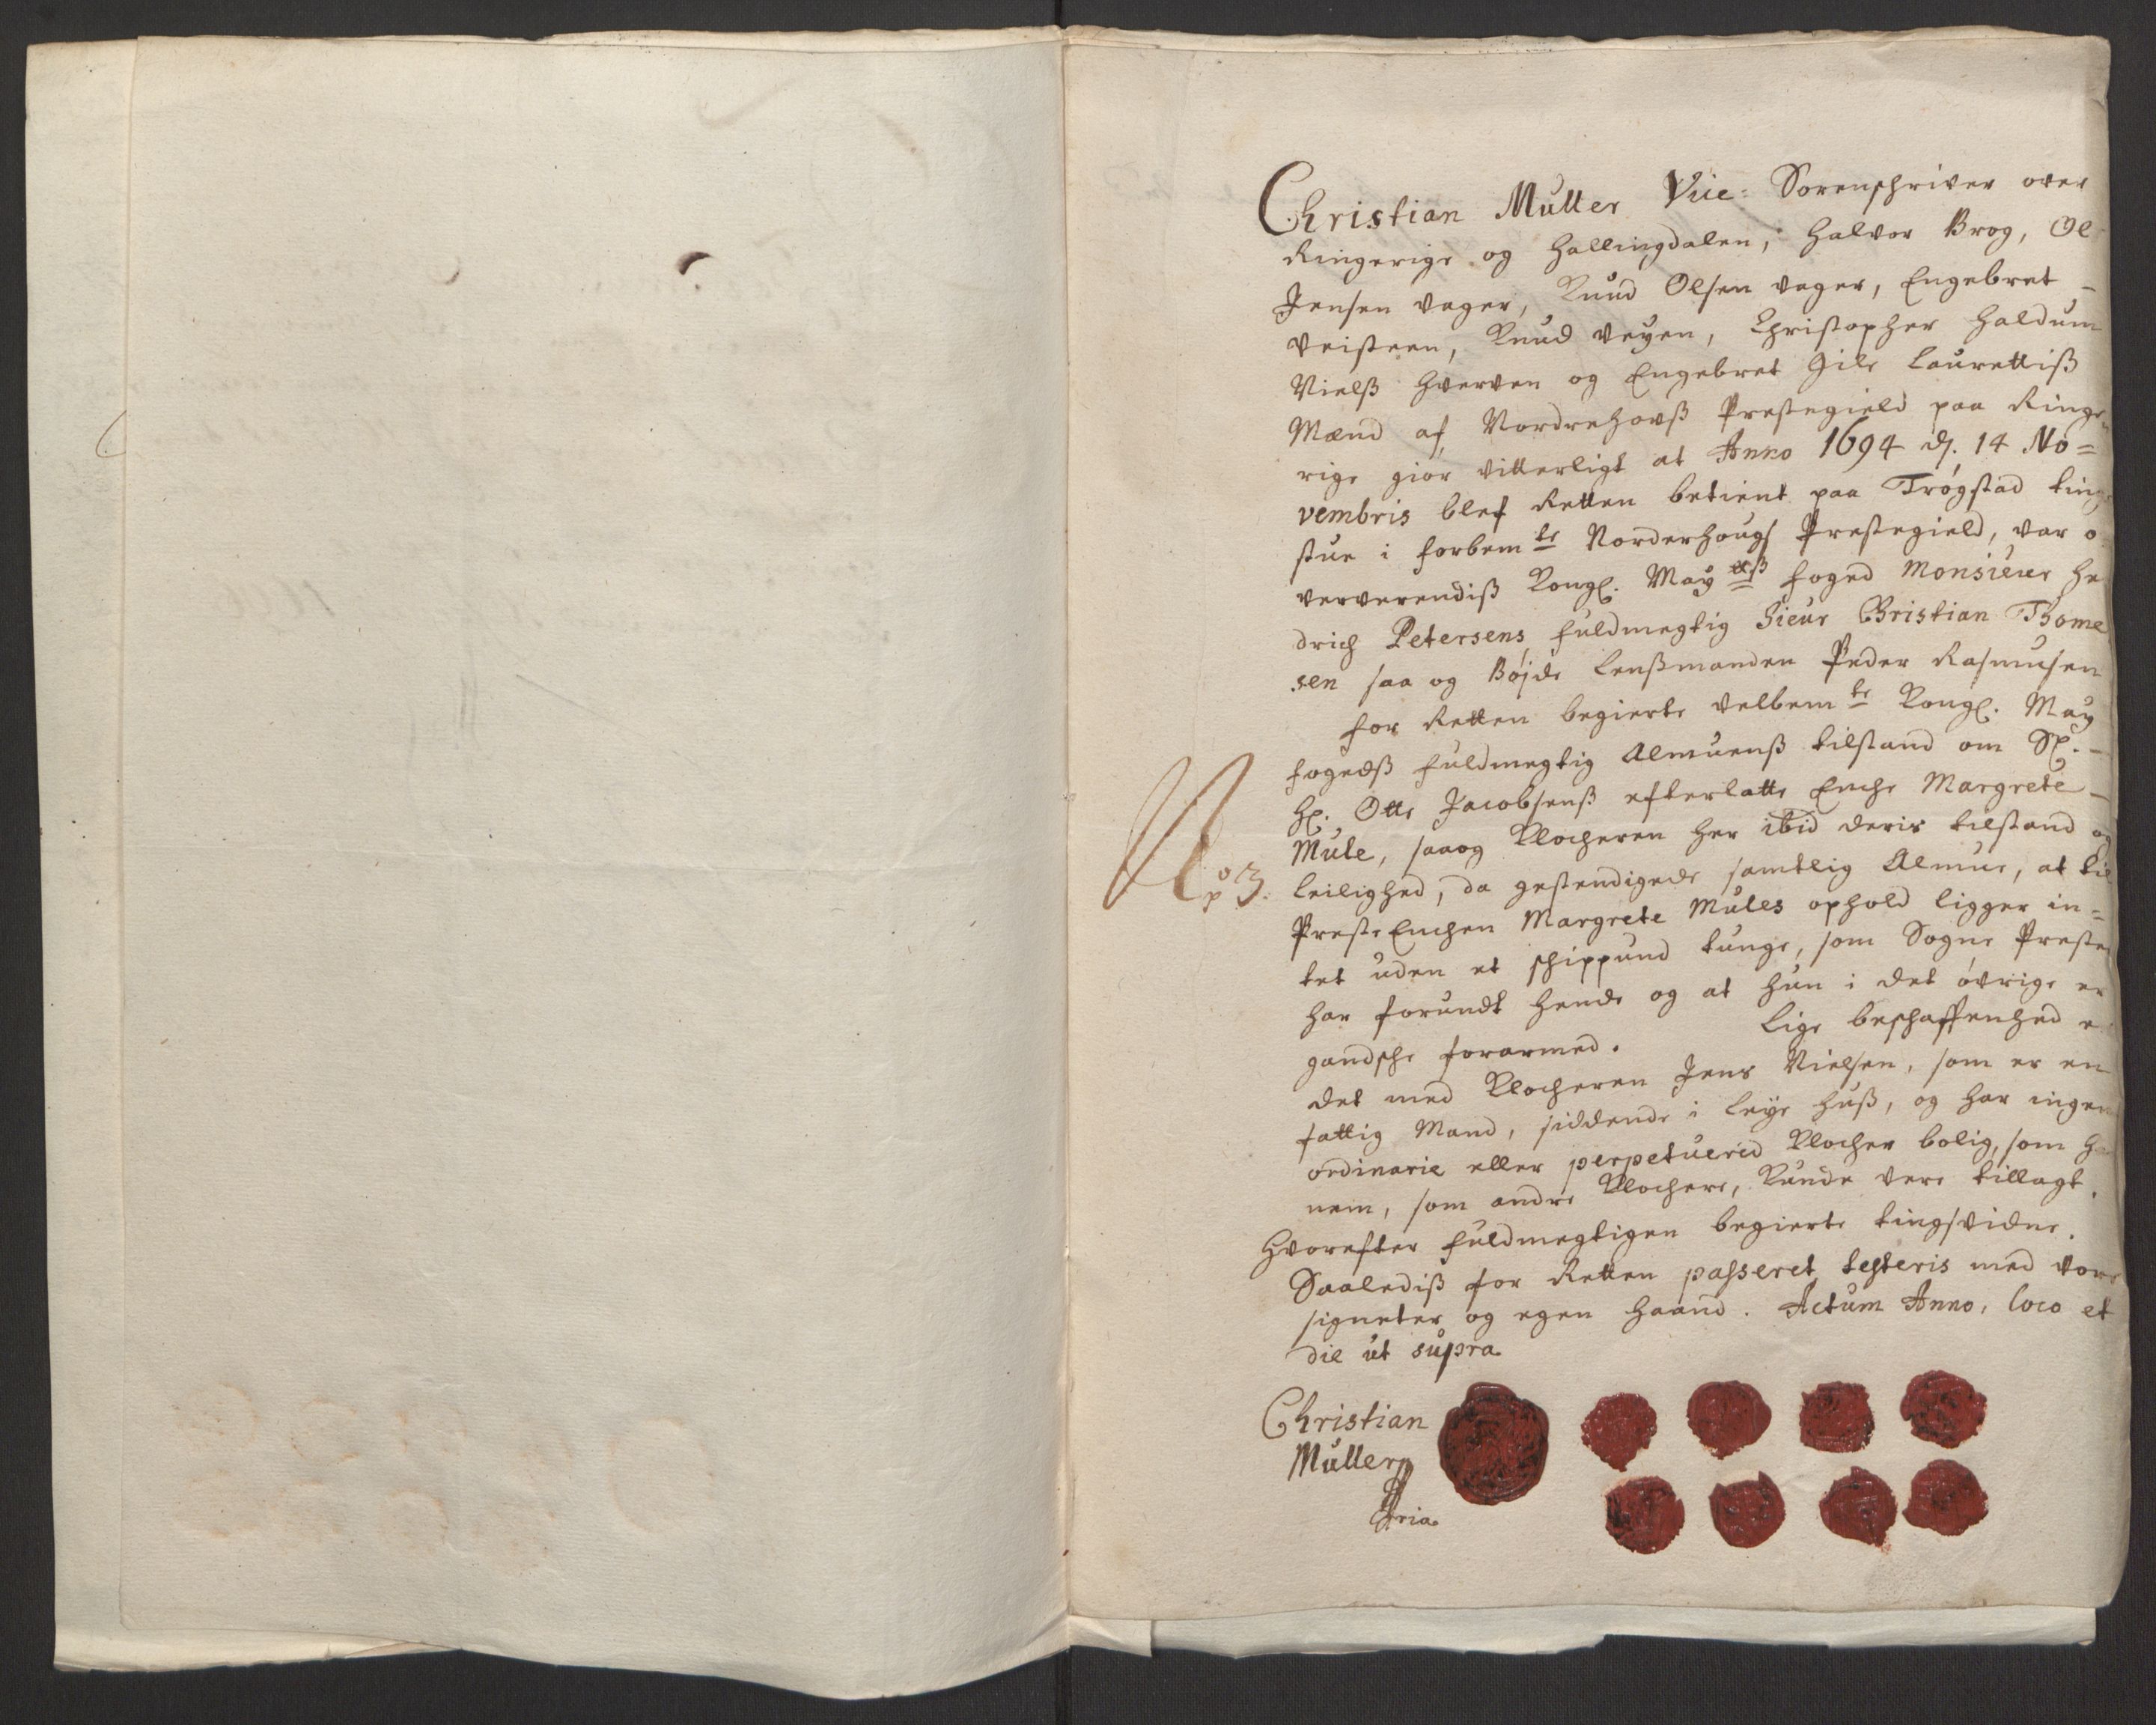 Christian Muller Vice: Sorenschriver over
Ringerige og Hallingdalen, Halvor Brog, Ol
Jensen vager, Knud Olsen vager, Engebret -
Veisteen, Knud Veyen, Christopher Haldum
Nielß Hverven og Engebret Gile Laurettiß
Mænd af Nordrehovß Prestegield paa Ringe
rige giør vitterligt at Anno 1694 d. 14 No=
vembris blef Retten betient paa Trøgstad ting
stue i forbemte Norderhougs Prestegield, var o
ververendiß Kongl. May ttß foged Monsieur He
drich Petersens fuldmegtig Sieur Christian Thome
sen saa og Bøjde Lenßmanden Peder Rasmusen
for Retten begierte velbemte Kongl. May
fogedß fuldmegtig Almuenß tilstand om Sl. -
Hr. Otte Jacobsenß efterlatte Enche Margrete -
Mule, saaog Klocheren her ibid deris tilstand og
No 3.
leilighed, da gestendigede samtlig Almue, at til
Preste Enchen Margrete Mules ophold ligger in=
tet uden et schippund tunge, som Sogne Preste
har forundt hende og at hun i det øvrige er
gandsche forarmed. Lige beschaffenhed e
det med Klocheren Jens Nielsen, som er en
fattig Mand, siddende i leye huß, og har ingen
ordinarie eller perpetuerid Klocher bolig, som h
nem, som andre Klochere, Kunde vere tillagt.
Hvorefter fuldmegtigen begierte tingsvidne.
Saalediß for Retten passeret testeris med vore
signeter og egen haand. Actum Anno, loco et
die ut supra
Christian
Muller